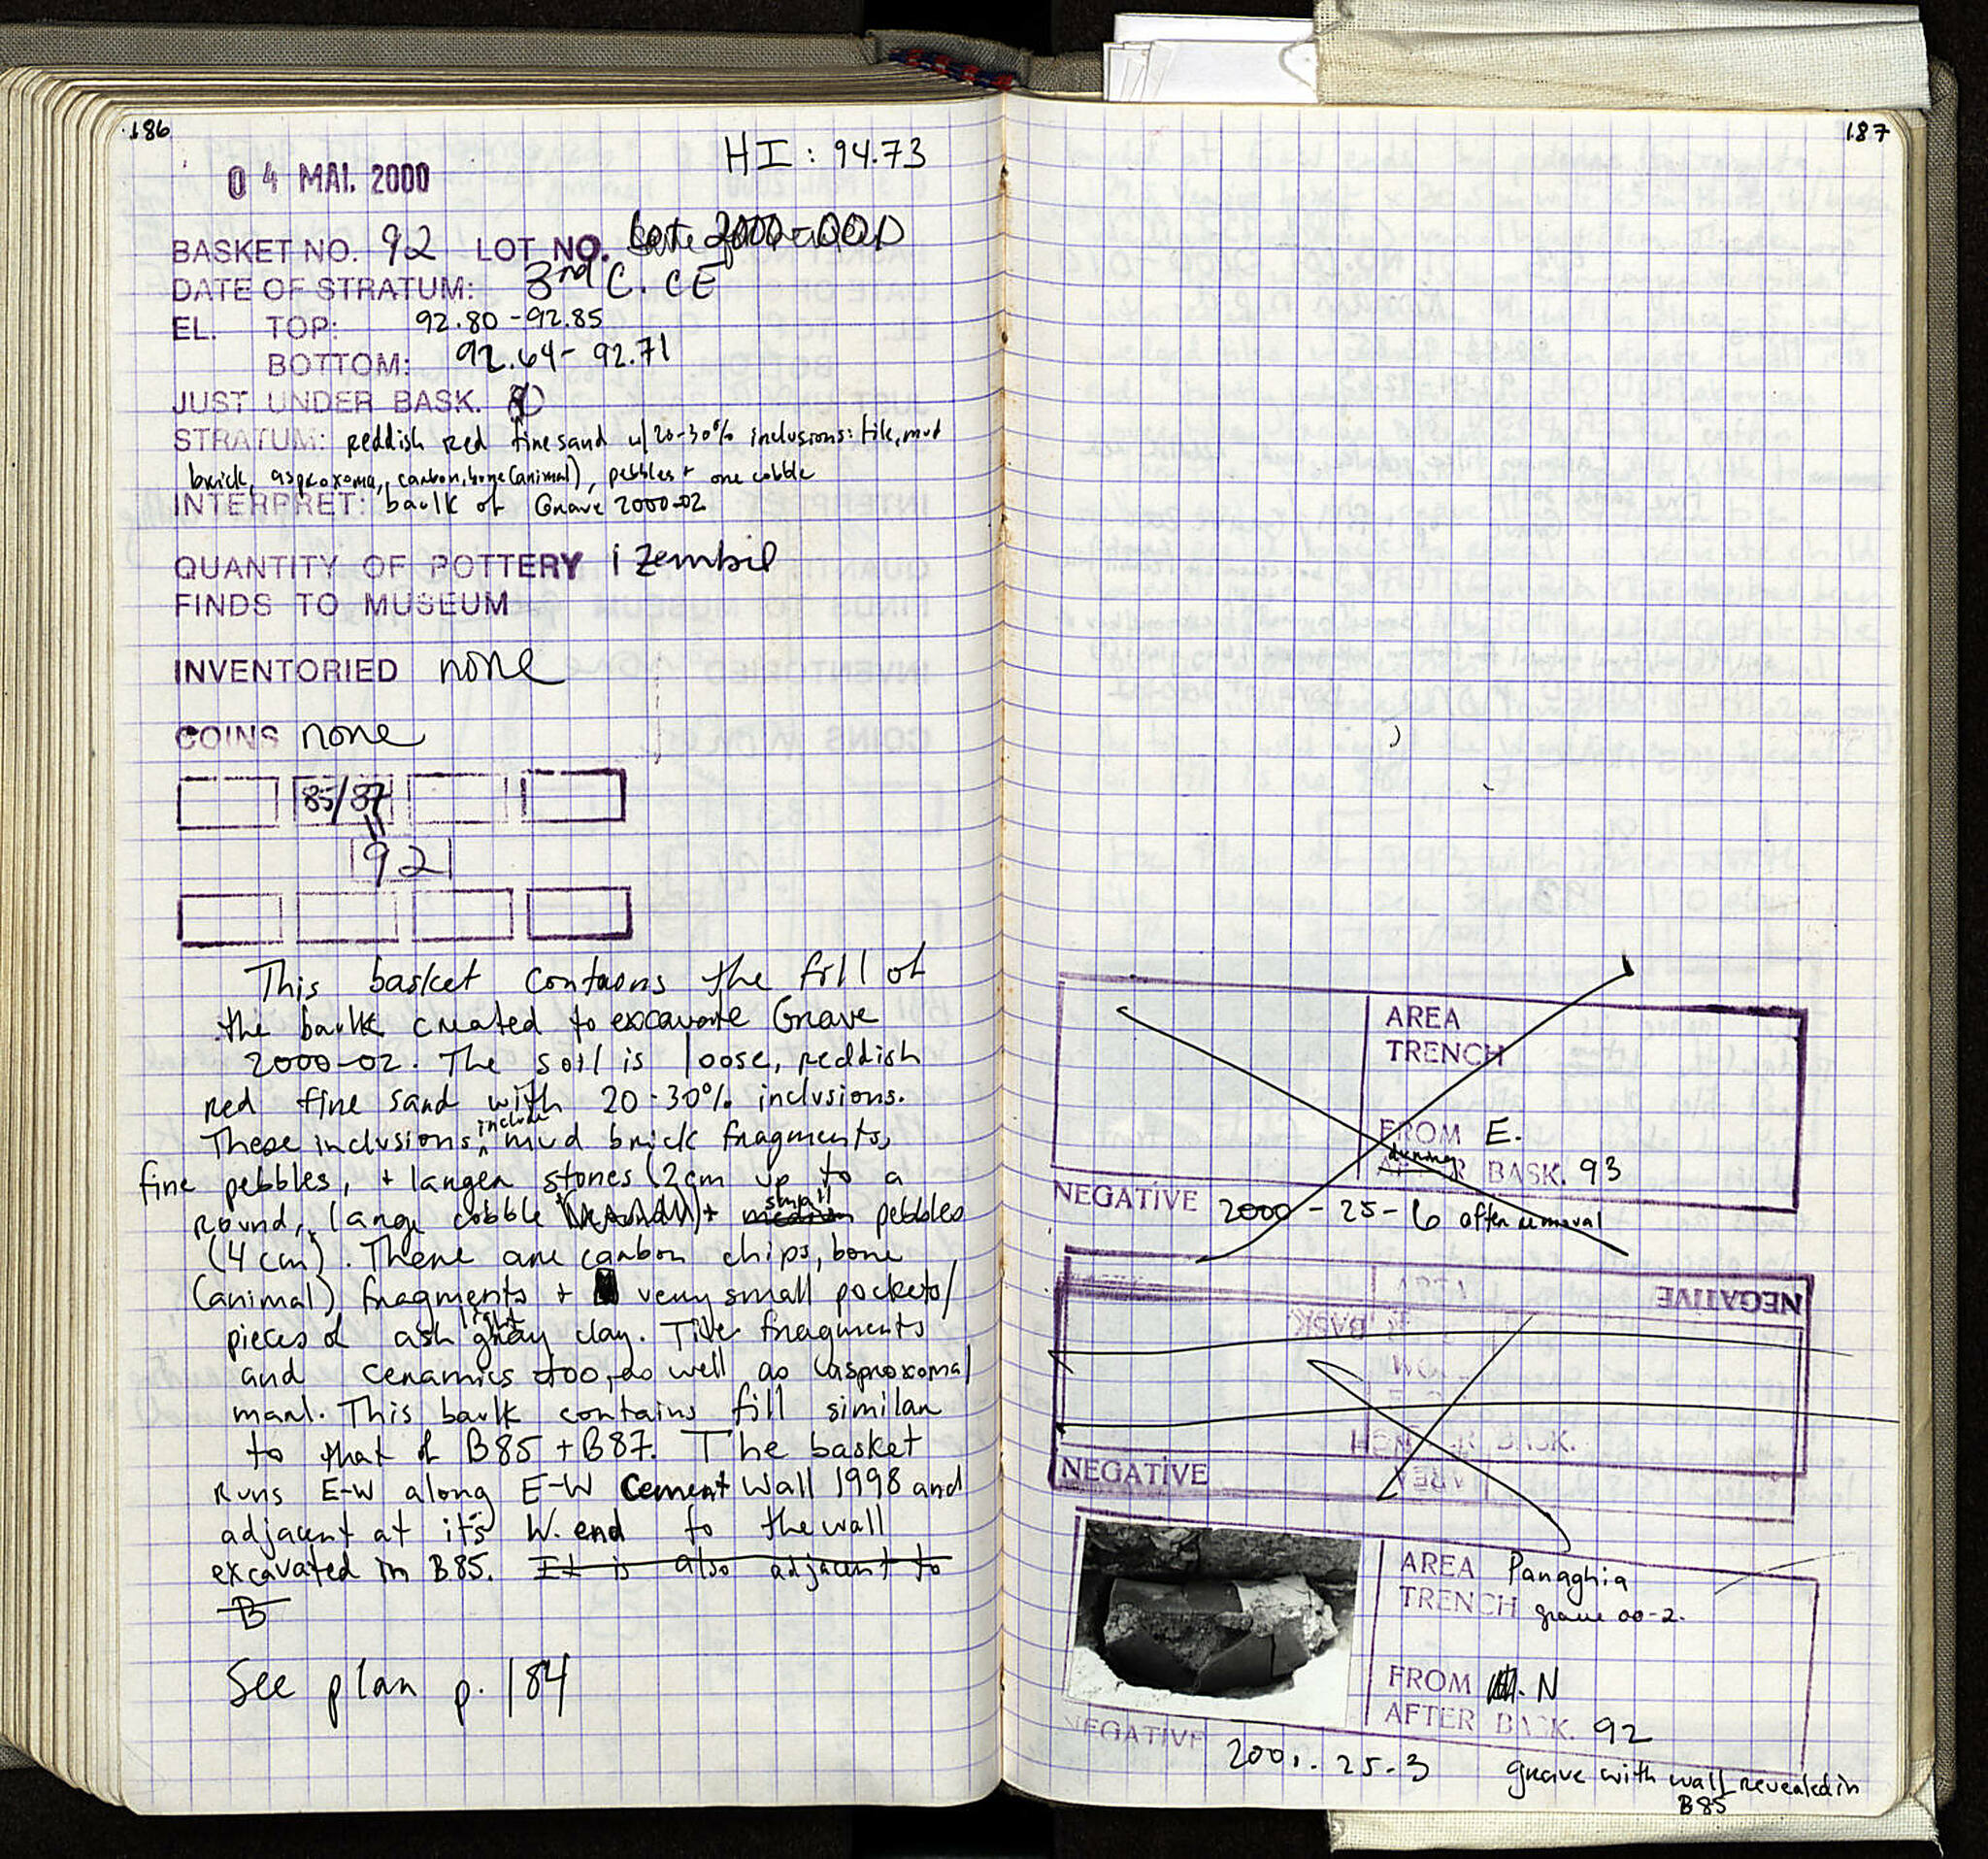 186
HI: 94.73
04 MAI. 2000
BASKET NO. 92 LOT NO.
DATE OF STRATUM: 3rd C. CE
EL. TOP: 92.80-92.85
BOTTOM: 92.64-92.71
JUST UNDER BASK.
STRATUM: Reddish red fine sand w/20-30% inclusions: tile, mud
brick, asproxoma, carbon, bone (animal), pebbles + one cobble
INTERPRET: baulk of Grave 2000-02
QUANTITY OF POTTERY 1 zembil
FINDS TO MUSEUM
INVENTORIED none
COINS none
85/87
92
This basket contains the fill of
the baulk created to excavate Grave
2000-02. The soil is loose, reddish
red fine sand with 20-30% inclusions.
These inclusions include mud brick fragments,
fine pebbles, + larger stones (2cm up to a
round, large cobble + small pebbles
(4cm). There are carbon chips, bone
(animal) fragments + very small pockets/
pieces of ash light gray clay. Tile fragments
and ceramics too, as well as (asproxoma)
marl. This baulk contains fill similar
to that of B85 + B87. The basket
runs E-W along E-W Cement Wall 1998 and
adjacent at its W. end to the wall
excavated in B85. It is also adjacent to
B
See plan p. 184
187
AREA
TRENCH
FROM E.
during AFTER BASK. 93
NEGATIVE 2000-25-6 after removal
NEGATIVE
NEGATIVE
AREA Panaghia
TRENCH grave 00-2.
FROM N
AFTER BASK. 92
NEGATIVE 2001-25-3 grave with wall revealed in
B85